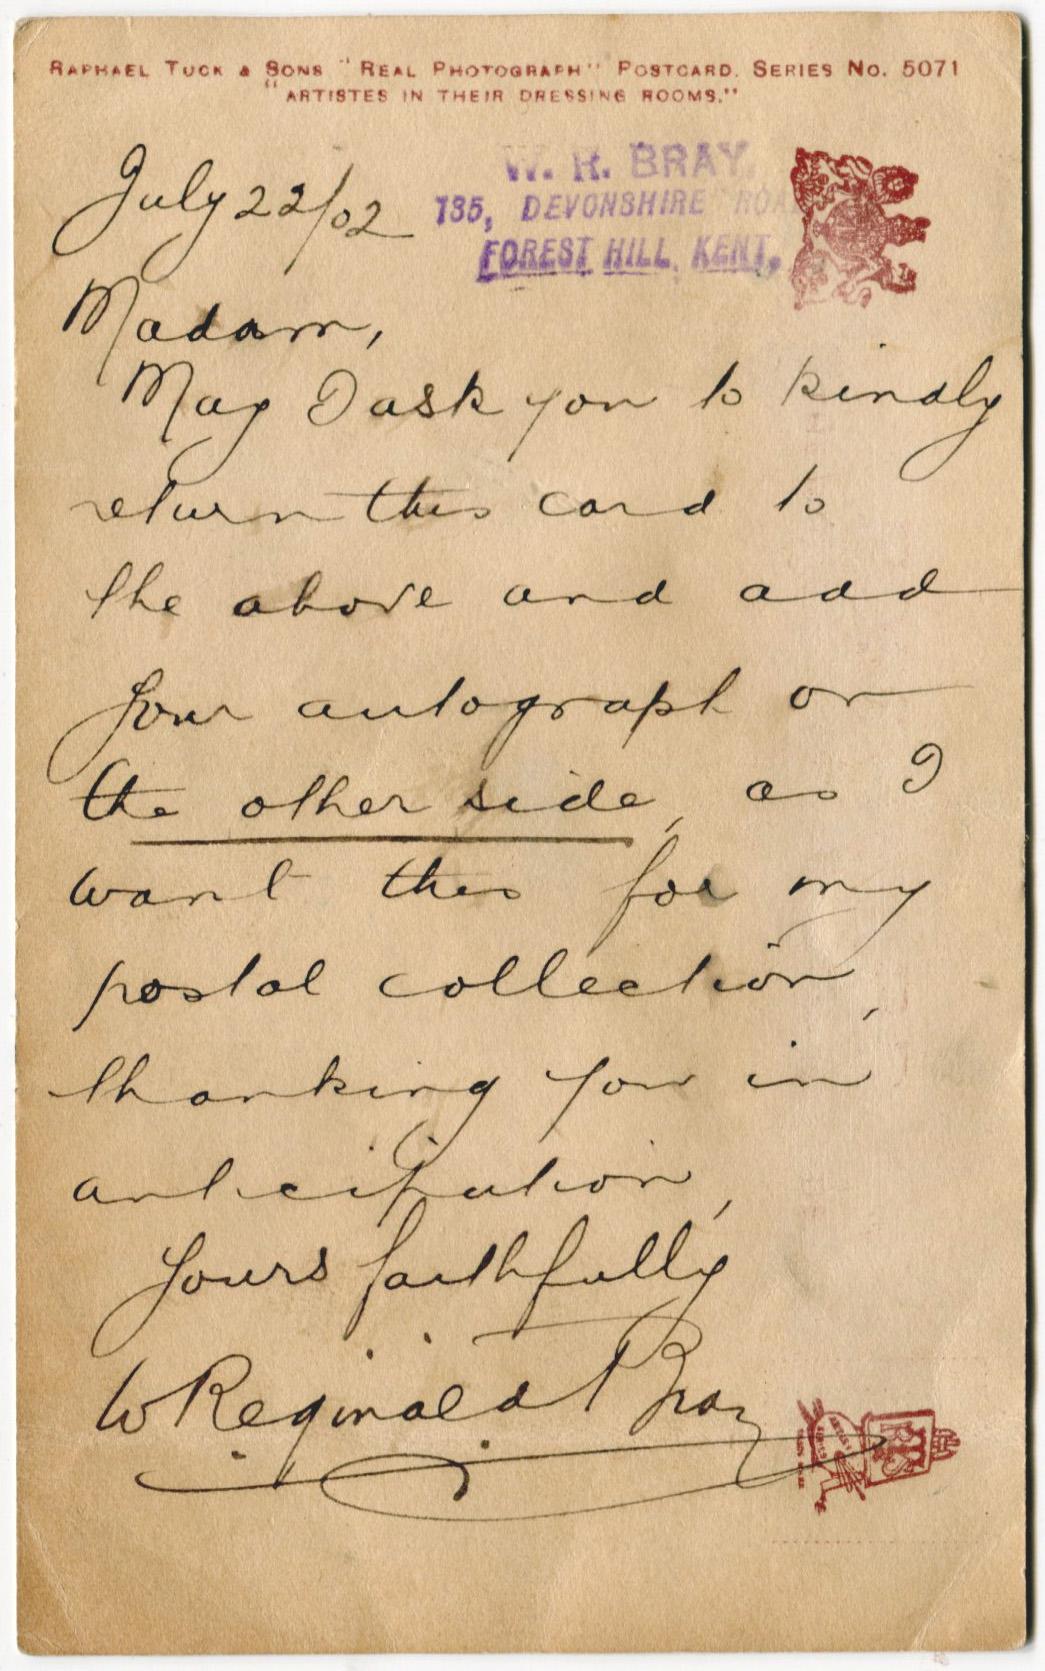 RAPHAEL TUCK & SONS "REAL PHOTOGRAPH" POSTCARD. SERIES No. 5071
"ARTISTES IN THEIR DRESSING ROOMS."
W. R. BRAY,
135, DEVONSHIRE ROA
FOREST HILL, KENT.
July 22/02
Madam,
May I ask you to kindly
return this card to
the above and add
your autograph on
the other side, as I
want this for my
postal collection,
thanking you in
anticipation,
Yours faithfully
W Reginald Bray